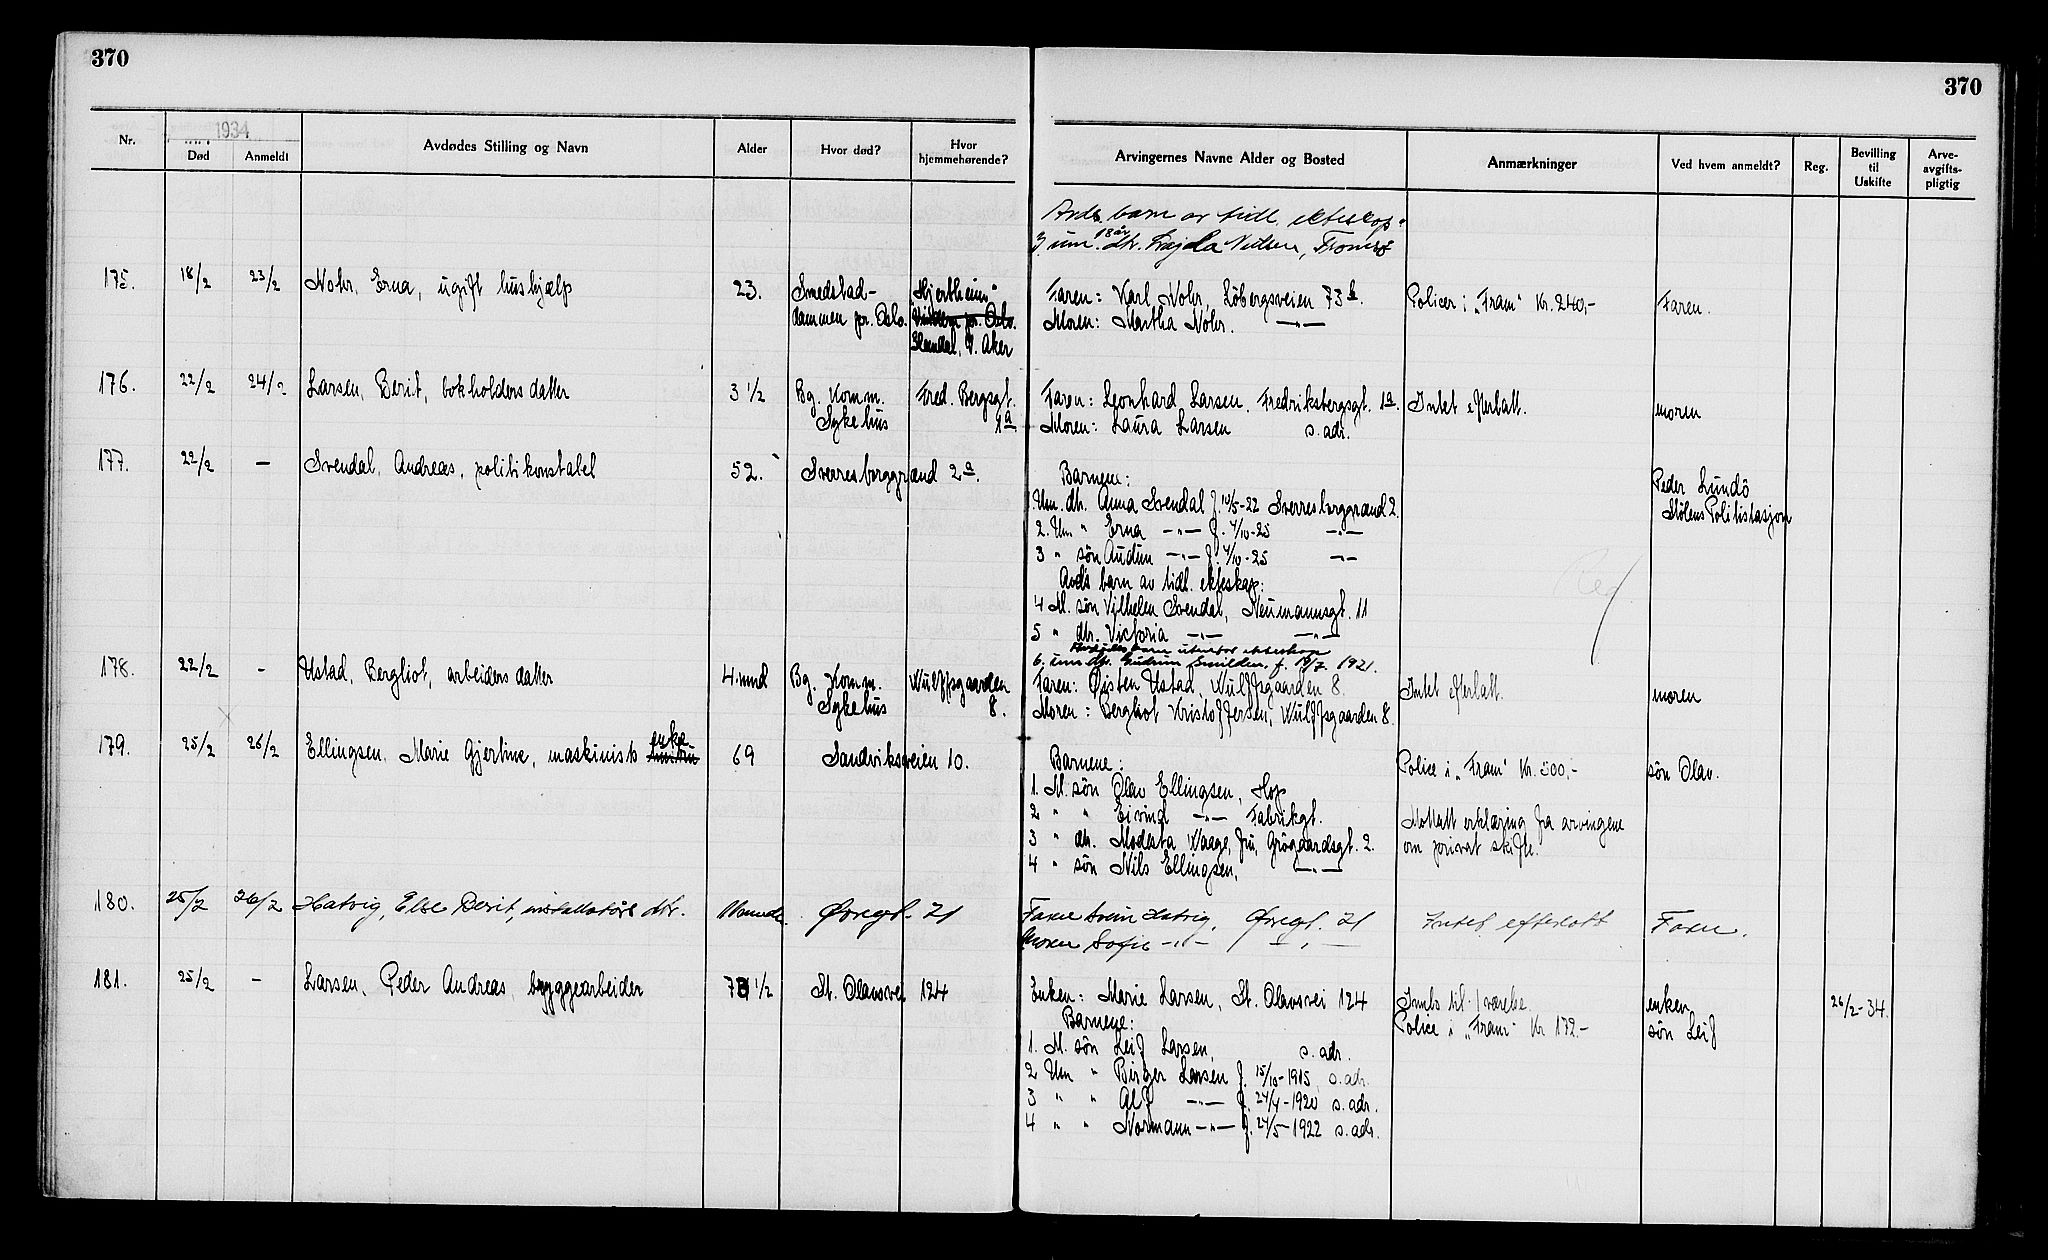 370
370
1934
Nr.
Død
Anmeldt
Avdødes Stilling og Navn
Alder
Hvor død?
Hvor hjemmehørende?
Arvingernes Navne Alder og Bosted
Anmærkninger
Ved hvem anmeldt?
Reg.
Bevilling til Uskifte
Arve-avgifts-pligtig
Avds. barn av tidl. ekteskap:
3 um. 18 år dtr. Nilsen, Tromsø
175. 18/2 23/2 Nohr, Erna, ugift hushjælp 23. Smedstad- "Hjertheim" Faren: Karl Nohr, Löbergsveien 73 b. Policer i "Fram" Kr. 240,- Faren.
dammen pr. Oslo. Vindern pr. Oslo. Moren: Martha Nohr. —"—
V. Aker
176. 22/2 24/2 Larsen, Berit, bokholders datter 3 1/2 Bg. Komm. Fred. Bergsgt. Faren: Leonhard Larsen, Fredriksbergsgt. 1a. Intet efterlatt. moren
Sykehus 1a. Moren: Laura Larsen s. adr.
177. 22/2 — Svendal, Andreas, politikonstabel 52. Sverresborggrænd 2a. Barnene: Peder Lundö
1. Um. dtr. Anna Svendal f. 10/5-22 Sverresborggrænd 2. Mölens Politistasjon
2. Um " Erna —"— f. 4/10-25 —"—
3 " sön Audun —"— f. 4/10-25 —"—
Avd's barn av tidl. ekteskap:
Reg.
4 M. sön Vilhelm Svendal, Neumannsgt. 11
5 " dtr. Victoria —"— —"—
Avdødes barn utenfor ekteskap
6. um dtr. Gudrun f. 19/7 1921.
178. 22/2 - Ustad, Bergliot, arbeiders datter 4. mnd Bg. Komm. Wulffsgaarden Faren: Øisten Ustad, Wulffsgaarden 8. Intet efterlatt. moren
Sykehus 8. Moren: Bergliot Kristoffersen, Wulffsgaarden 8.
179. 25/2 26/2 Ellingsen, Marie Gjertine, maskinists enke hustru 69 Sandviksveien 10. Barnene: Police i "Fram" Kr. 500,- sön Olav.
1. M. sön Olav Ellingsen, Hop
2 " " Eivind —"— Fabrikgt. Mottatt erklæring fra arvingene
3 " dtr. Modesta Waage, fru, Grögaardsgt. 2. om privat skifte.
4 " sön Nils Ellingsen, —"—
180. 25/2 26/2 Hatvig, Else Berit, installatørs dtr. Øvregt. 21 Faren Svein Hatvig, Øvregt. 21 Intet efterlatt Faren.
Moren Sofie —"— —"—
181. 25/2 — Larsen, Peder Andreas, byggearbeider 1/2 St. Olavsvei 124 Enken: Marie Larsen, St. Olavsvei 124 Innbo til f værelse. enken 26/2-34.
Barnene: Police i "Fram" Kr 172.- sön Leif
1. M. sön Leif Larsen, s. adr.
2 Um " Birger Larsen f. 15/10-1915 s. adr.
3 " " Alf —"— f. 24/4-1920 s. adr.
4 " " Normann —"— f. 24/5-1922 s. adr.